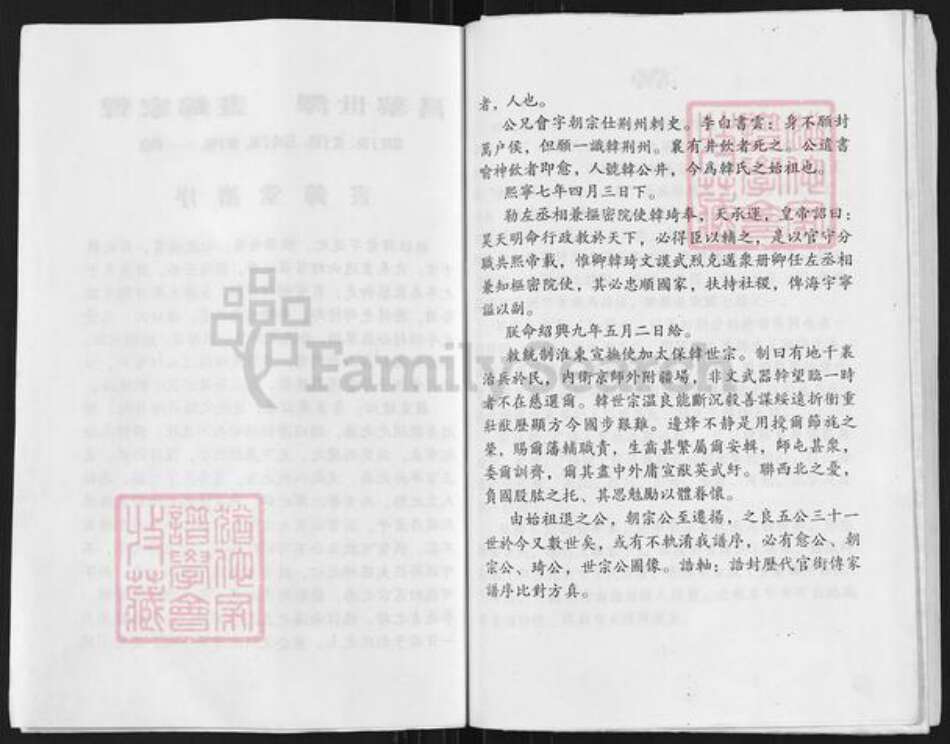 者，人也。
公兄會字朝宗仕荆州刺史。李白書雲：身不願封
萬户侯，但願一識韓荆州。襄有井飲者死之。公遺書
喻神飲者即愈，人號韓公井，今爲韓氏之始祖也。
熙寧七年四月三日下。
勅左丞相兼樞密院使韓琦奉，天承運，皇帝詔曰：
昊天明命行政教於天下，必得臣以輔之，是以官守分
職共熙帝載，惟卿韓琦文謨武烈克邁衆册卿任左丞相
兼知樞密院使，其必忠順國家，扶持社稷，俾海宇寧
謐以副。
朕命紹興九年五月二日給。
敕銃制淮東宣撫使加太保韓世宗。制曰有地千裏
治兵於民，内衛京師外附疆場，非文武器幹望臨一時
者不在慈選爾。韓世宗温良能斷沉毅善謀綏遠折衝重
壯猷歷顯方今國步艱難。邊烽不静是用授爾節旄之
榮，賜爾藩輔職貴，生齒甚繁屬爾安輯，師屯甚衆，
委爾訓齊，爾其盡中外庸宣猷英武紆。聯西北之憂，
負國股肱之托、其思勉勵以體眷懷。
由始祖退之公，朝宗公至遷揚，之良五公三十一
世於今又數世矣，或有不軌淆我譜序，必有愈公、朝
宗公、琦公，世宗公圖像。誥軸；誥封歷代官銜傳家
譜序比對方真。
FamilySearch